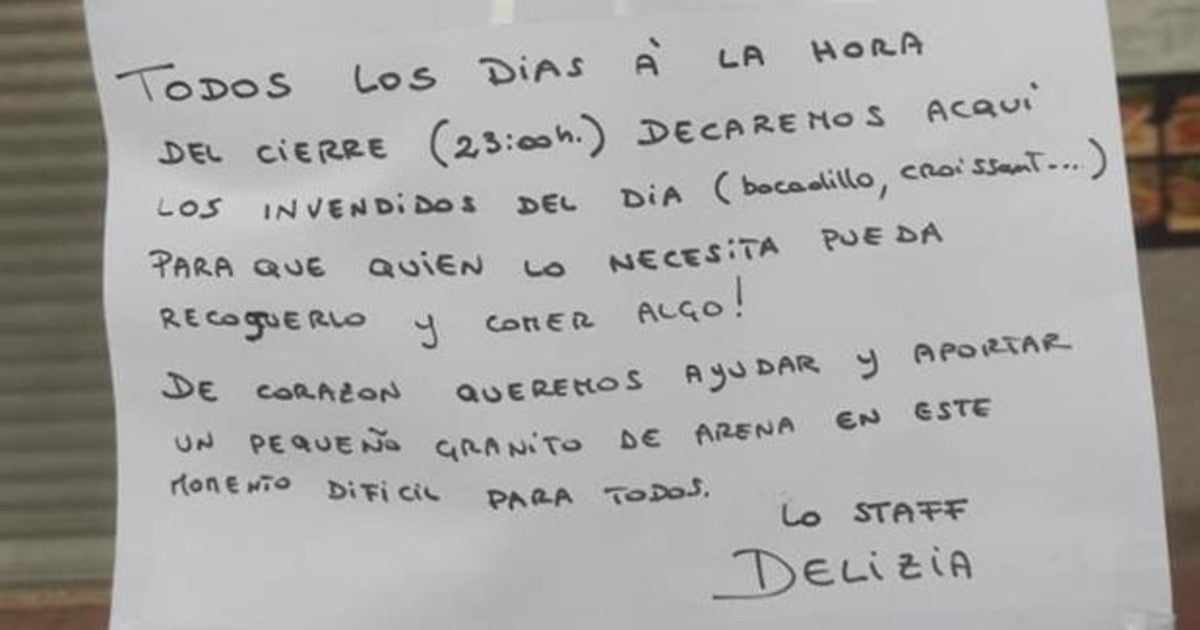 TODOS LOS DIAS À LA HORA
DEL CIERRE (23:00h.) DECAREMOS ACQUI
LOS INVENDIDOS DEL DIA (bocadillo, croissant....)
PARA QUE QUIEN LO NECESITA PUEDA
RECOGUERLO Y COMER ALGO!
DE CORAZON QUEREMOS AYUDAR Y APORTAR
UN PEQUEÑO GRANITO DE ARENA EN ESTE
MOMENTO DIFICIL PARA TODOS.
LO STAFF
DELIZIA